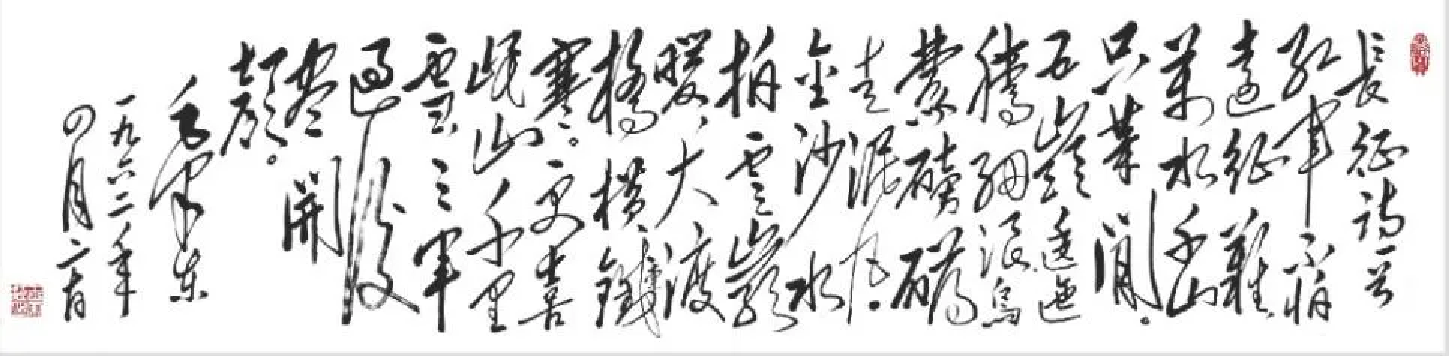 長征詩一首
紅軍不怕
遠征難
萬水千山
只等閒。
五嶺逶迤
騰細浪烏
蒙磅礴
走泥丸。
金沙水
拍雲崖
暖,大渡
橋橫鐵
寒。更喜
岷山千里
雪三軍
過後
盡開
顏。
毛澤東
一九六二年
四月二十日